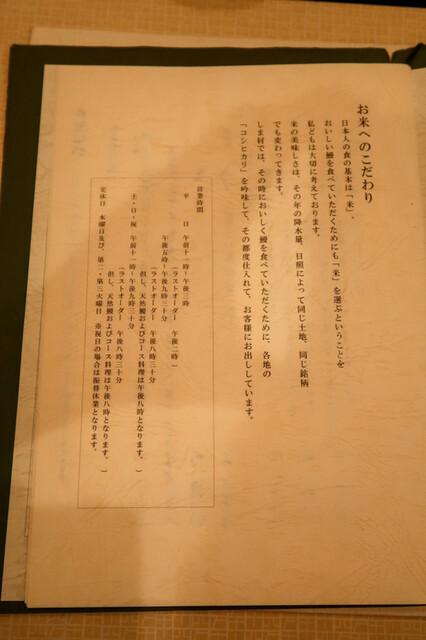 お米へのこだわり
日本人の食の基本は「米」、
おいしい鰻を食べていただくためにも「米」を選ぶということを
私どもは大切に考えております。
米の美味しさは、その年の降水量、日照によって同じ土地、同じ銘柄
でも変わってきます。
しま村では、その時においしく鰻を食べていただくために、各地の
「コシヒカリ」を吟味して、その都度仕入れて、お客様にお出ししています。
営業時間
平 日 午前十一時～午後三時
(ラストオーダー 午後二時)
午後五時～午後九時三十分
(ラストオーダー 午後八時三十分
但し、天然鰻およびコース料理は午後八時となります。)
土・日・祝 午前十一時～午後九時三十分
(ラストオーダー 午後八時三十分
但し、天然鰻およびコース料理は午後八時となります。)
定休日 水曜日及び、第二・第三火曜日 ※祝日の場合は振替休業となります。